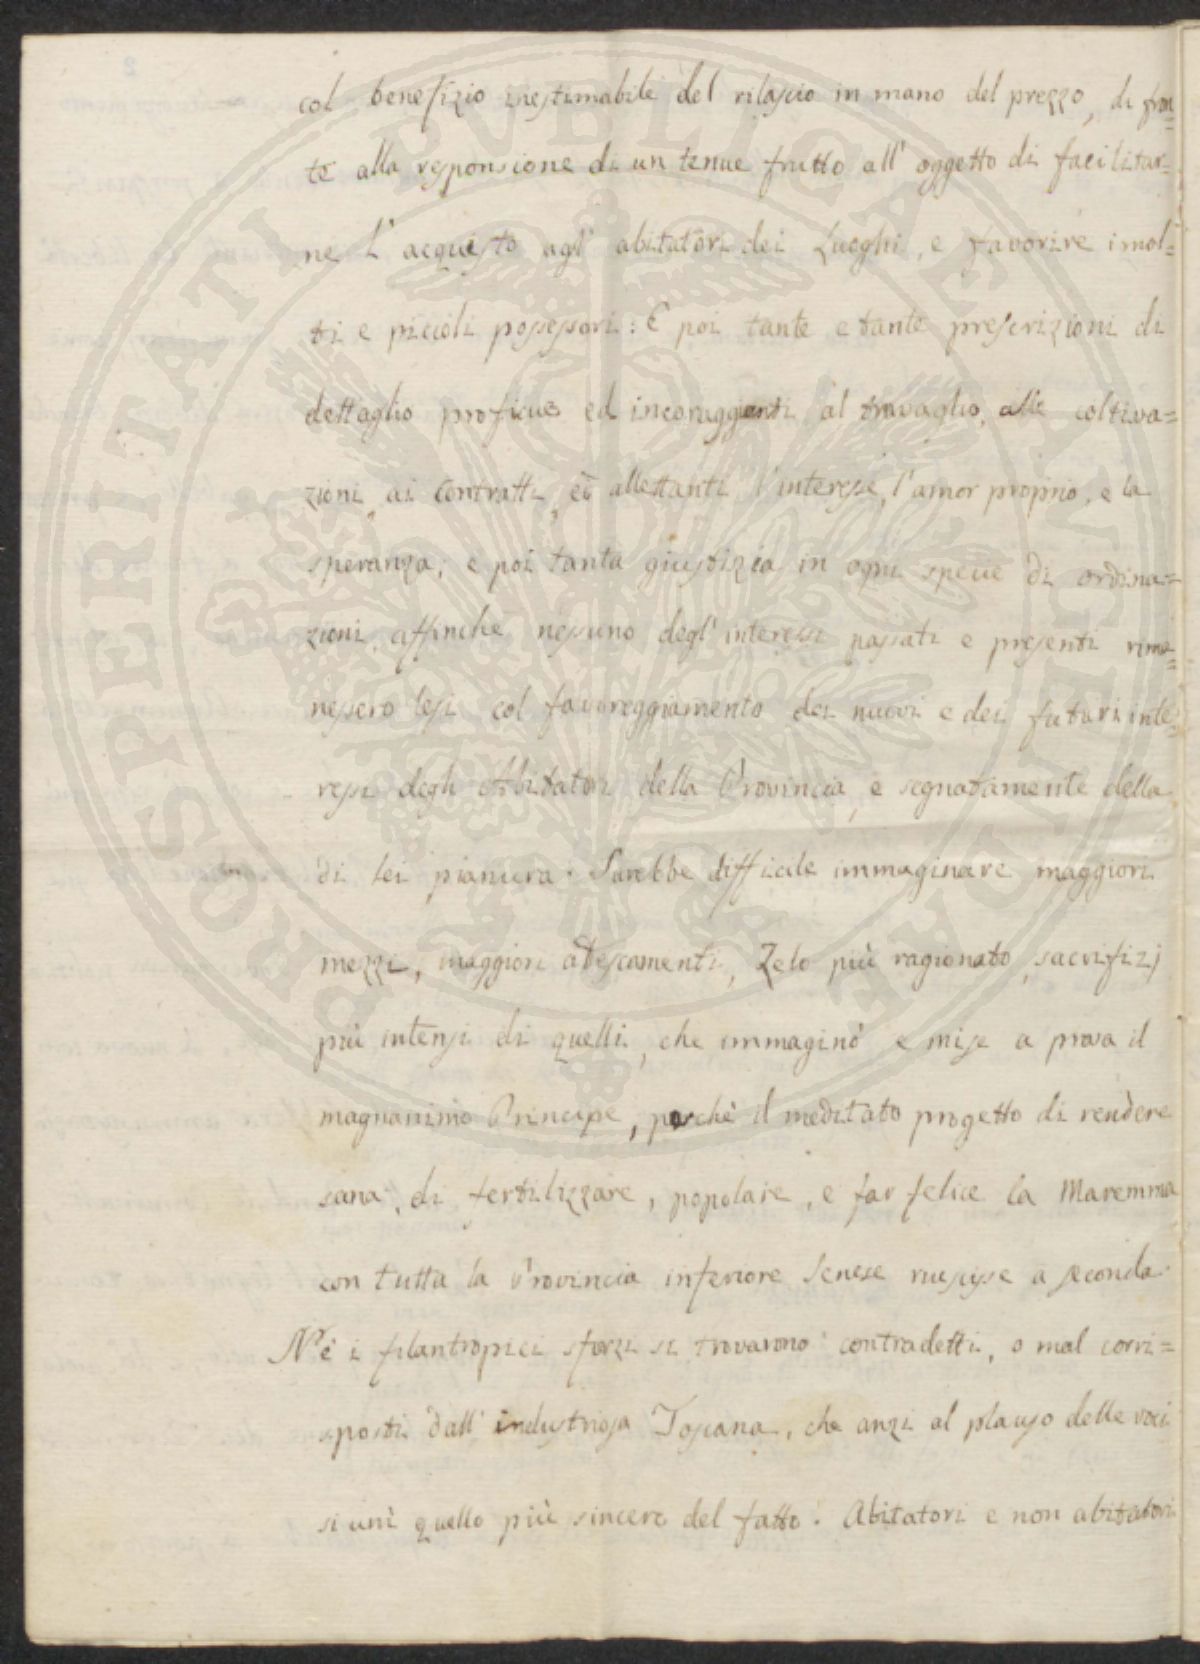 col benefizio inestimabile del rilascio in mano del prezzo, di fron=
te alla responsione di un tenue frutto all' oggetto di facilitar=
ne l' acquisto agl' abitatori dei Luoghi, e favorire i mol=
ti e piccoli possessori: E poi tante e tante prescrizioni di
dettaglio proficue ed incoraggianti al travaglio, alle coltiva=
zioni, ai Contratti, ed allettanti l' interesse, l' amor proprio, e la
speranza; e poi tanta giustizia in ogni specie di ordina=
zioni, affinche nessuno degl' interessi passati e presenti rima=
nessero lesi col favoreggiamento dei nuovi e dei futuri inte=
ressi degli Abitatori della Provincia, e segnatamente della
di lei pianura. Sarebbe difficile immaginare maggiori
mezzi, maggiori adescamenti, Zelo più ragionato, sacrifizj
più intensi di quelli, che immaginò e mise a prova il
magnanimo Principe, perchè il meditato progetto di rendere
sana, di fertilizzare, popolare, e far felice la Maremma
con tutta la Provincia inferiore Senese riuscisse a seconda.
Nè i filantropici sforzi si trovarono contradetti, o mal corri=
sposti dall' industriosa Toscana, che anzi al plauso delle voci
si unì quello più sincero del fatto. Abitatori e non abitatori
PROSPERITATI PVBLICAE AVGENDAE